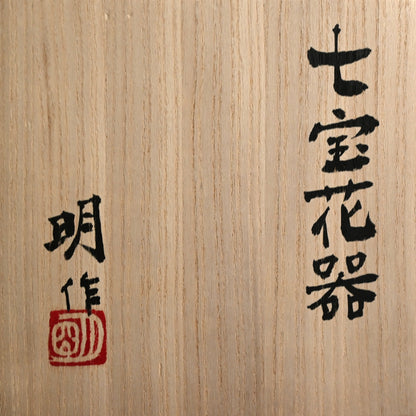 七宝花器
明作